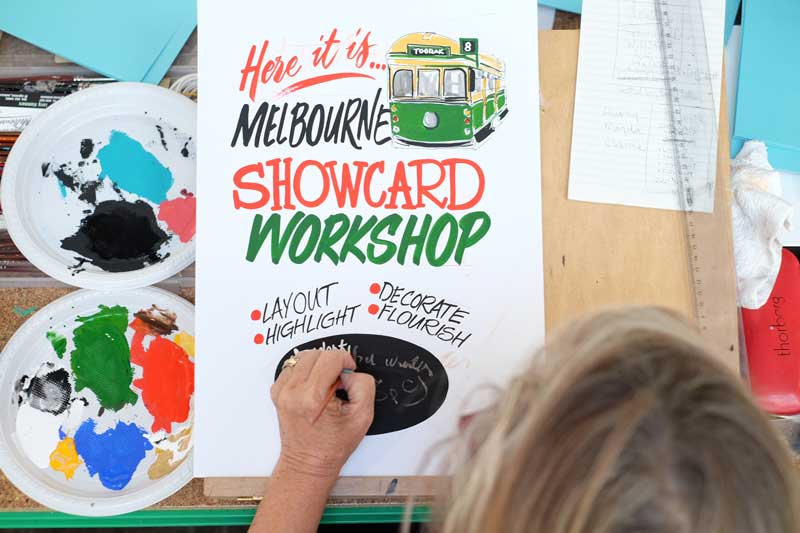 Here it is...
TOORAK 8
MELBOURNE
SHOWCARD
WORKSHOP
• LAYOUT
• HIGHLIGHT
• DECORATE
• FLOURISH
thorberg